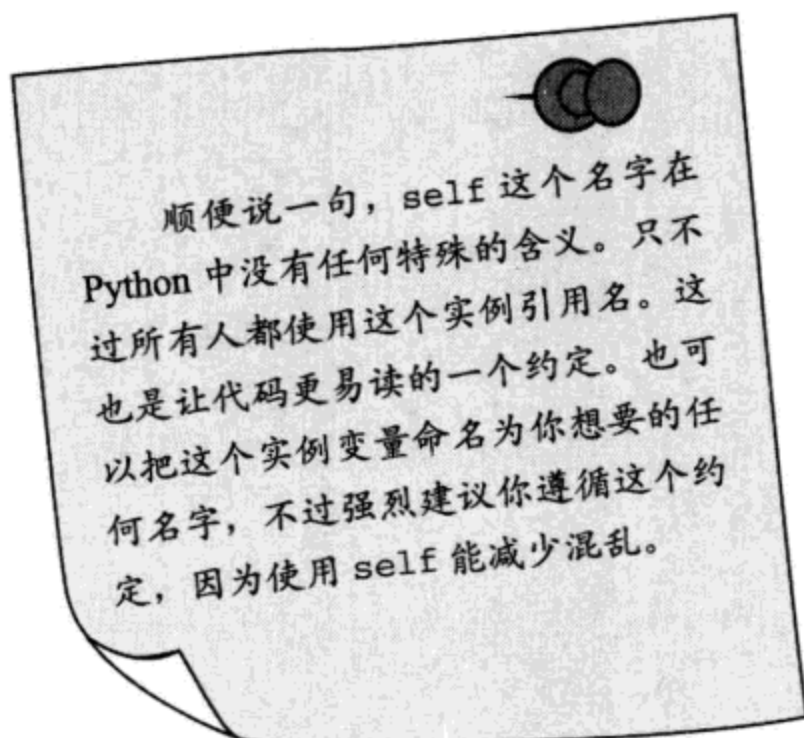 顺便说一句，self 这个名字在
Python 中没有任何特殊的含义。只不
过所有人都使用这个实例引用名。这
也是让代码更易读的一个约定。也可
以把这个实例变量命名为你想要的任
何名字，不过强烈建议你遵循这个约
定，因为使用 self 能减少混乱。